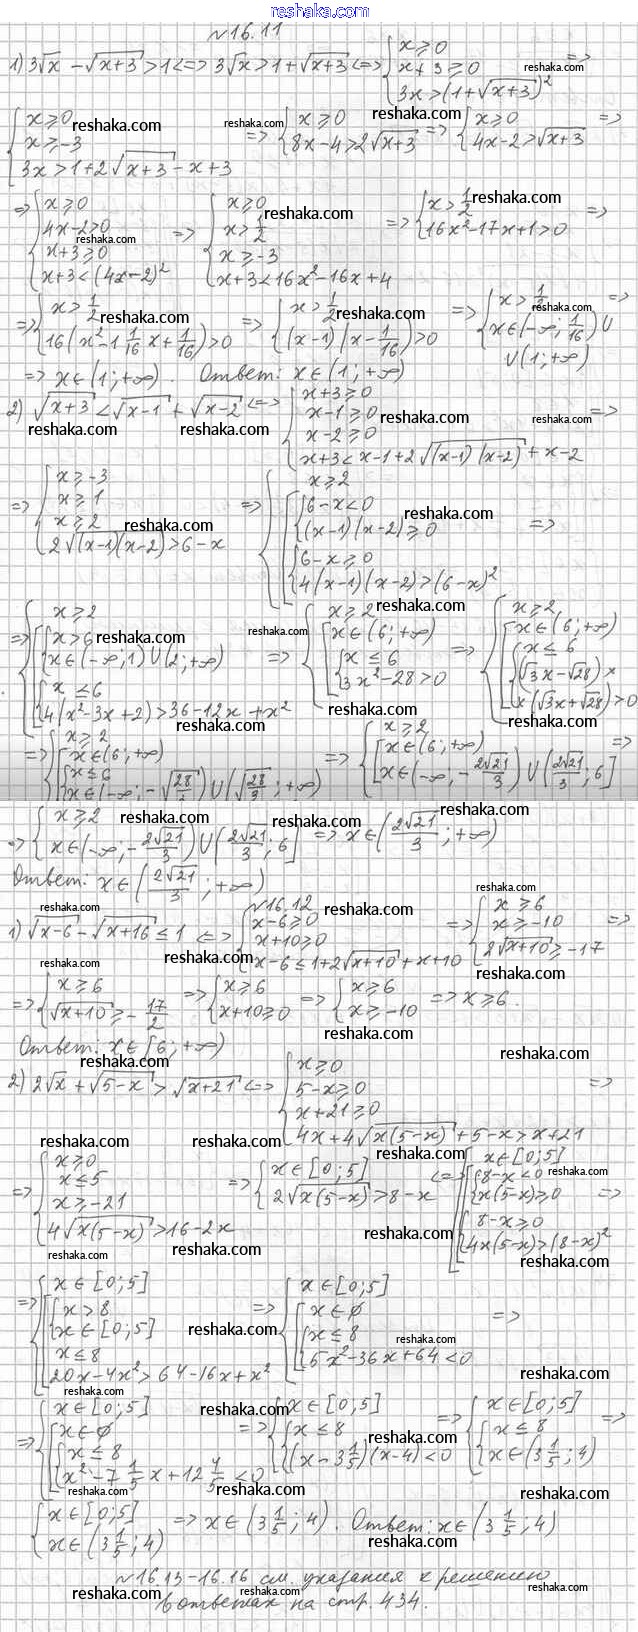 reshaka.com
№16.11
1) 3√x − √(x+3) > 1 <=> 3√x > 1 + √(x+3) <=> { x ≥ 0; x + 3 ≥ 0; 3x > (1 + √(x+3))² =>
{ x ≥ 0; x ≥ −3; 3x > 1 + 2√(x+3) − x + 3 => { x ≥ 0; 8x − 4 > 2√(x+3) => { x ≥ 0; 4x − 2 > √(x+3) =>
=> { x ≥ 0; 4x − 2 > 0; x + 3 ≥ 0; x + 3 < (4x − 2)² => { x ≥ 0; x > 1/2; x ≥ −3; x + 3 < 16x² − 16x + 4 => { x > 1/2; 16x² − 17x + 1 > 0 =>
=> { x > 1/2; 16(x² − 1 1/16 x + 1/16) > 0 => { x > 1/2; (x − 1)(x − 1/16) > 0 => { x > 1/2; x ∈ (−∞; 1/16) ∪ ∪ (1; +∞) =>
=> x ∈ (1; +∞). Ответ: x ∈ (1; +∞)
2) √(x+3) < √(x−1) + √(x−2) <=> { x + 3 ≥ 0; x − 1 ≥ 0; x − 2 ≥ 0; x + 3 < x − 1 + 2√((x−1)(x−2)) + x − 2 =>
=> { x ≥ −3; x ≥ 1; x ≥ 2; 2√((x−1)(x−2)) > 6 − x => { x ≥ 2; [ { 6 − x < 0; (x−1)(x−2) ≥ 0; { 6 − x ≥ 0; 4(x−1)(x−2) > (6−x)² =>
=> { x ≥ 2; [ { x > 6; x ∈ (−∞; 1) ∪ (2; +∞); { x ≤ 6; 4(x² − 3x + 2) > 36 − 12x + x² => { x ≥ 2; [ x ∈ (6; +∞); { x ≤ 6; 3x² − 28 > 0 => { x ≥ 2; [ x ∈ (6; +∞); { x ≤ 6; (√3x − √28) × × (√3x + √28) > 0
=> { x ≥ 2; [ x ∈ (6; +∞); { x ≤ 6; x ∈ (−∞; −√(28/3)) ∪ (√(28/3); +∞) => { x ≥ 2; [ x ∈ (6; +∞); x ∈ (−∞; −2√21/3) ∪ (2√21/3; 6] =>
=> { x ≥ 2; x ∈ (−∞; −2√21/3) ∪ (2√21/3; 6] => x ∈ (2√21/3; +∞)
Ответ: x ∈ (2√21/3; +∞)
№16.12
1) √(x−6) − √(x+16) ≤ 1 <=> { x − 6 ≥ 0; x + 10 ≥ 0; x − 6 ≤ 1 + 2√(x+10) + x + 10 => { x ≥ 6; x ≥ −10; 2√(x+10) ≥ −17 =>
=> { x ≥ 6; √(x+10) ≥ −17/2 => { x ≥ 6; x + 10 ≥ 0 => { x ≥ 6; x ≥ −10 => x ≥ 6.
Ответ: x ∈ [6; +∞)
2) 2√x + √(5−x) > √(x+21) <=> { x ≥ 0; 5 − x ≥ 0; x + 21 ≥ 0; 4x + 4√(x(5−x)) + 5 − x > x + 21 =>
=> { x ≥ 0; x ≤ 5; x ≥ −21; 4√(x(5−x)) > 16 − 2x => { x ∈ [0; 5]; 2√(x(5−x)) > 8 − x <=> { x ∈ [0; 5]; [ { 8 − x < 0; x(5−x) ≥ 0; { 8 − x ≥ 0; 4x(5−x) > (8−x)² =>
=> { x ∈ [0; 5]; [ { x > 8; x ∈ [0; 5]; { x ≤ 8; 20x − 4x² > 64 − 16x + x² => { x ∈ [0; 5]; [ x ∈ ∅; { x ≤ 8; 5x² − 36x + 64 < 0 =>
=> { x ∈ [0; 5]; [ x ∈ ∅; { x ≤ 8; x² − 7 1/5 x + 12 4/5 < 0 => { x ∈ [0; 5]; { x ≤ 8; (x − 3 1/5)(x − 4) < 0 => { x ∈ [0; 5]; { x ≤ 8; x ∈ (3 1/5; 4) =>
{ x ∈ [0; 5]; x ∈ (3 1/5; 4) => x ∈ (3 1/5; 4). Ответ: x ∈ (3 1/5; 4)
№16.13 − 16.16 см. указания к решению
в ответах на стр. 434.